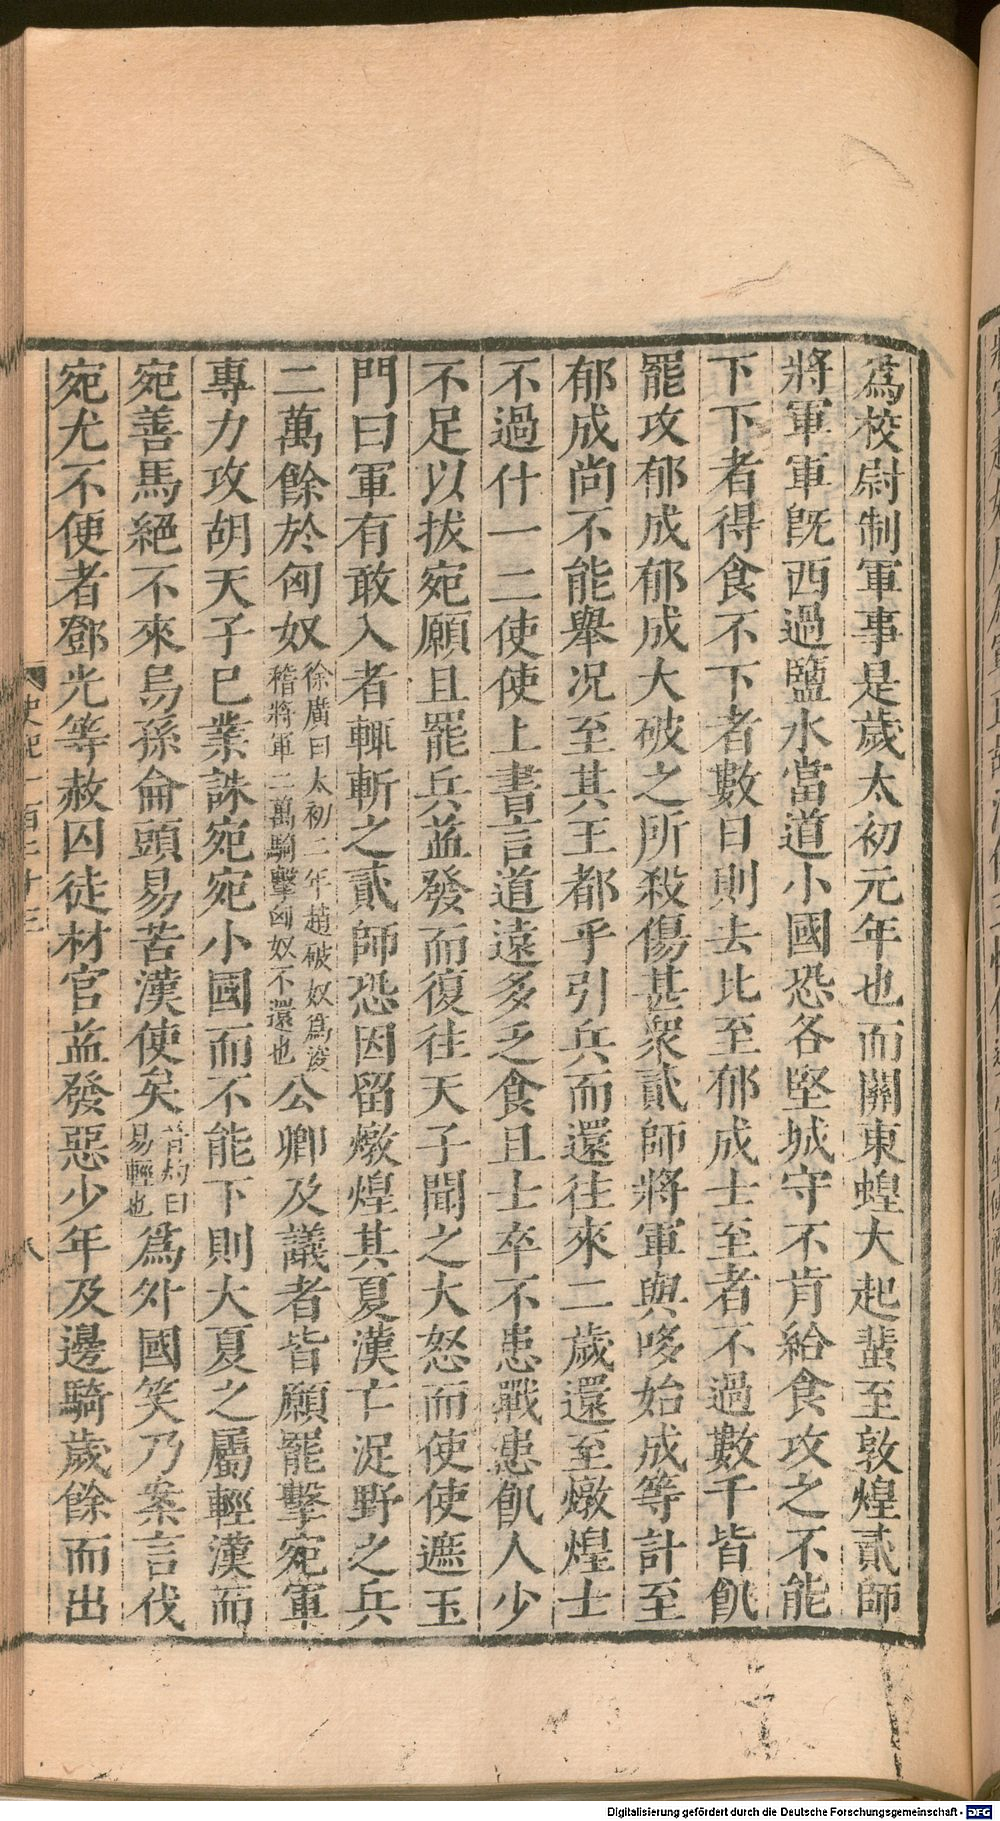 為校尉制軍事是歲太初元年也而關東蝗大起蜚至敦煌貳師
將軍軍既西過鹽水當道小國恐各堅城守不肯給食攻之不能
下下者得食不下者數日則去比至郁成士至者不過數千皆飢
罷攻郁成郁成大破之所殺傷甚衆貳師將軍與哆始成等計至
郁成尚不能舉况至其王都乎引兵而還往來二歲還至燉煌士
不過什一二使使上書言道遠多乏食且士卒不患戰患飢人少
不足以拔宛願且罷兵益發而復往天子聞之大怒而使使遮玉
門曰軍有敢入者輒斬之貳師恐因留燉煌其夏漢亡浞野之兵
二萬餘於匈奴
徐廣曰太初二年趙破奴爲浚
稽將軍二萬騎擊匈奴不還也
公卿及議者皆願罷擊宛軍
專力攻胡天子已業誅宛宛小國而不能下則大夏之屬輕漢而
宛善馬絕不來烏孫侖頭易苦漢使矣
晉灼曰
易輕也
爲外國笑乃案言伐
宛尤不便者鄧光等赦囚徒材官益發惡少年及邊騎歲餘而出
史記一百二十三
八
Digitalisierung gefördert durch die Deutsche Forschungsgemeinschaft - DFG